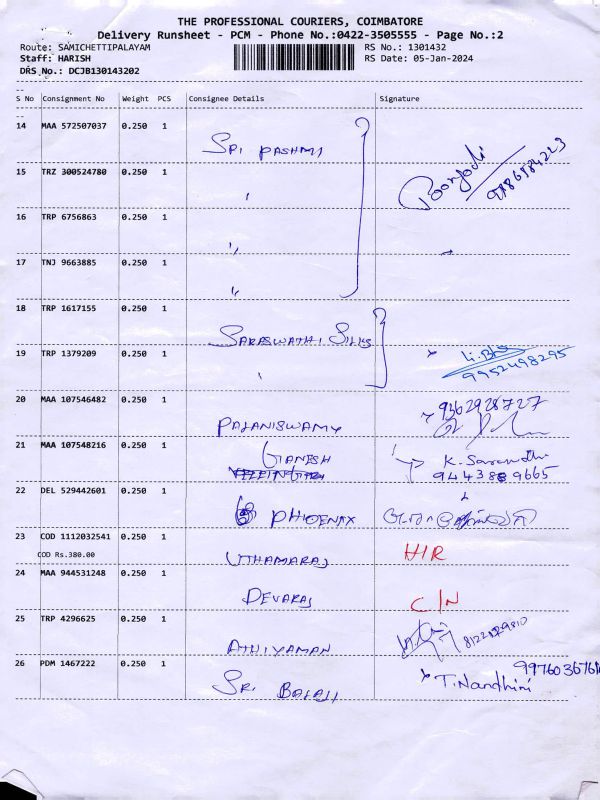 THE PROFESSIONAL COURIERS, COIMBATORE
Delivery Runsheet - PCM - Phone No.:0422-3505555 - Page No.:2
Route: SAMICHETTIPALAYAM RS No.: 1301432
Staff: HARISH RS Date: 05-Jan-2024
DRS No.: DCJB130143202
S No Consignment No Weight PCS Consignee Details Signature
14 MAA 572507037 0.250 1
SRI PASHMI
15 TRZ 300524780 0.250 1
9786984223
16 TRP 6756863 0.250 1
"
17 TNJ 9663885 0.250 1
"
18 TRP 1617155 0.250 1
SARASWATHI SILKS
19 TRP 1379209 0.250 1
9952498295
20 MAA 107546482 0.250 1 9362928727
PALANISWAMY
21 MAA 107548216 0.250 1 GANESH
9665
22 DEL 529442601 0.250 1
PHIOENAX
23 COD 1112032541 0.250 1
COD Rs.380.00 H/R
UTHAMARAJ
24 MAA 944531248 0.250 1
DEVARAJ C/N
25 TRP 4296625 0.250 1
ATHIYAMAN
26 PDM 1467222 0.250 1
SRI BALAJI T.Nandhini